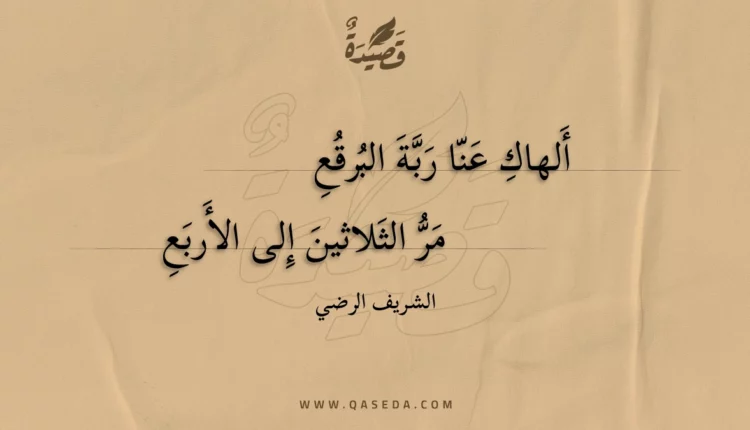 قَصِيدَةٌ
أَلهاكِ عَنّا رَبَّةَ البُرقُعِ
مَرُّ الثَلاثينَ إِلى الأَربَعِ
الشريف الرضي
WWW.QASEDA.COM